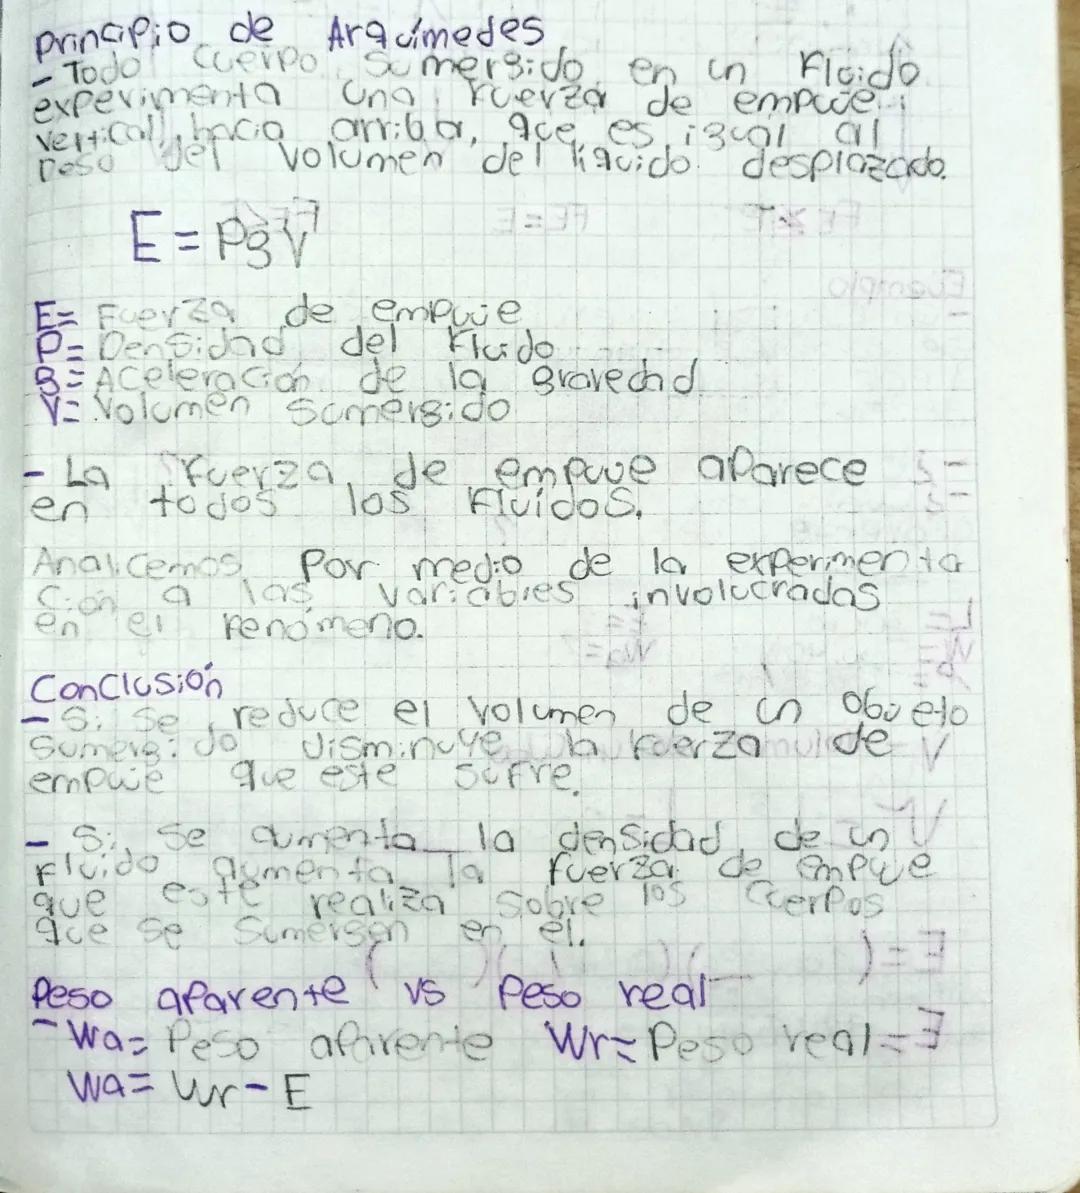 Principio de Arquímedes
- Todo cuerpo sumergido en un Fluido
experimenta una fuerza de empuje
vertical, hacia arriba, que es igual al
peso del volumen del líquido desplazado.
E = PgV
E= Fuerza de empuje
P= Densidad del Fluido
g= Aceleración de la gravedad
V= Volumen sumergido
- La fuerza de empuje aparece
en todos los Fluidos.
Analicemos por medio de la experimenta
ción a las variables involucradas
en el fenómeno.
Conclusión
- Si se reduce el volumen de un objeto
sumergido disminuye la fuerza de
empuje que este sufre.
- Si se aumenta la densidad de un
Fluido aumenta la fuerza de empuje
que este realiza sobre los cuerpos
que se sumergen en él.
Peso aparente vs Peso real
- Wa= Peso aparente Wr= Peso real
Wa= Wr - E